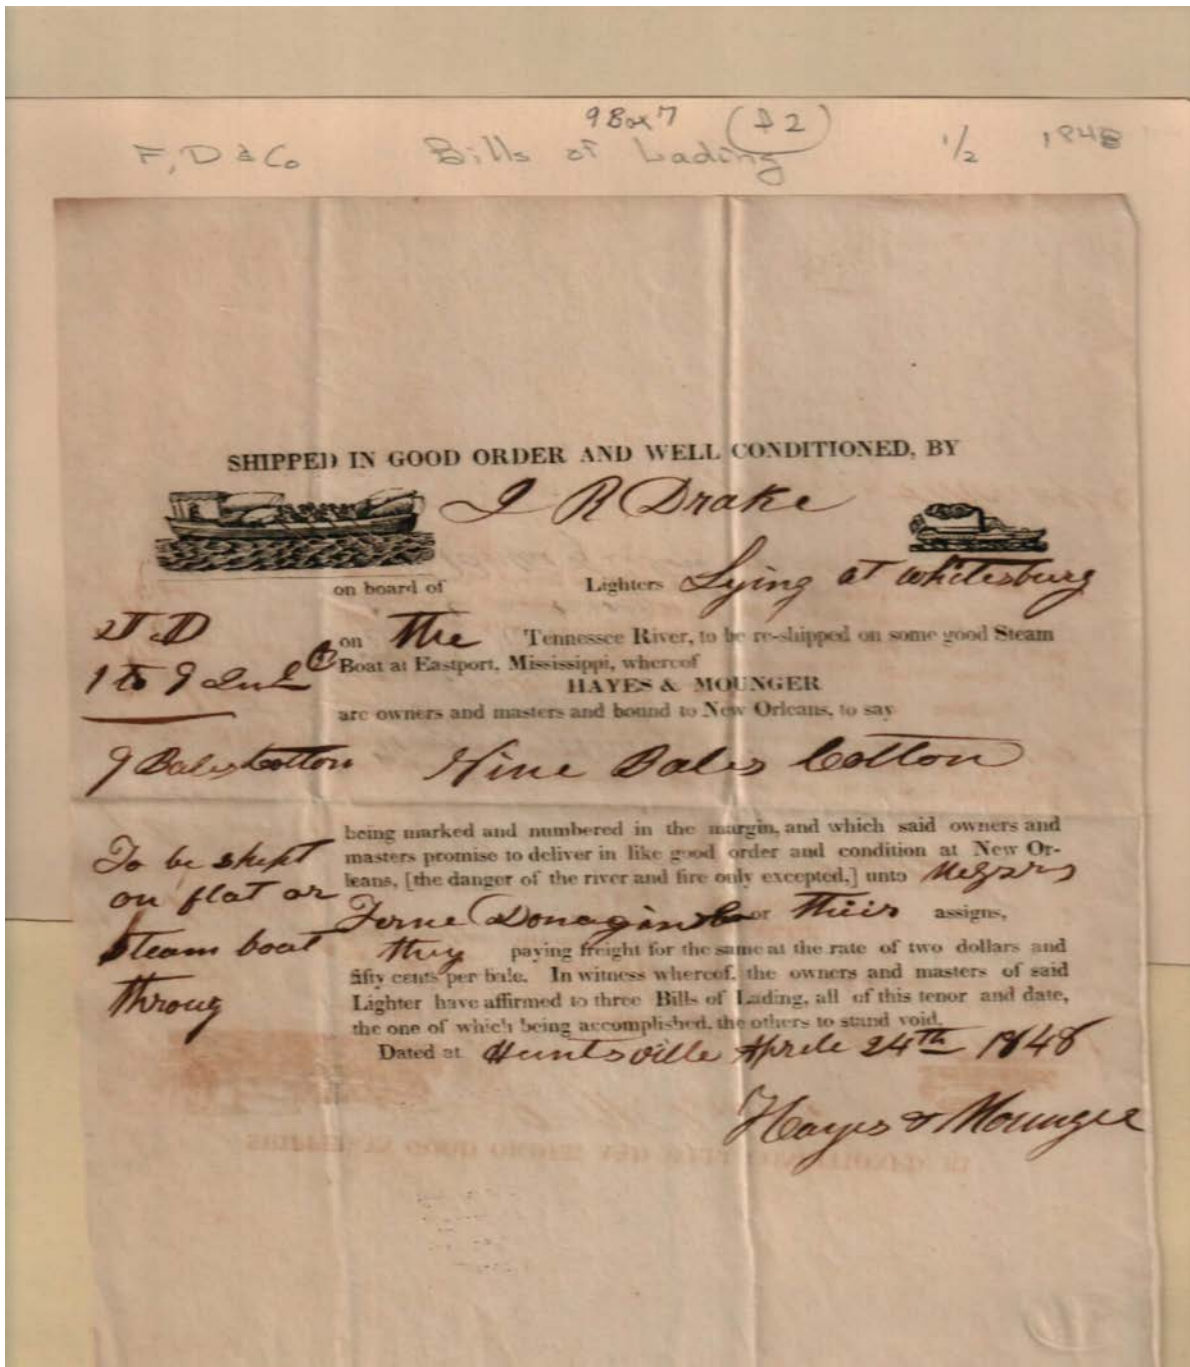 9 Box 7 (f 2)
F, D & Co Bills of Lading 1/2 1848
SHIPPED IN GOOD ORDER AND WELL CONDITIONED, BY
J R Drake
on board of Lighters Lying at Whitesburg
J. D
on the Tennessee River, to be re-shipped on some good Steam
Boat at Eastport, Mississippi, whereof
1 to 9
HAYES & MOUNGER
are owners and masters and bound to New Orleans, to say
9 Bales Cotton Nine Bales Cotton
being marked and numbered in the margin, and which said owners and
To be shipt masters promise to deliver in like good order and condition at New Or-
on flat or leans, [the danger of the river and fire only excepted,] unto
or their assigns,
Steam boat they paying freight for the same at the rate of two dollars and
fifty cents per bale. In witness whereof, the owners and masters of said
throug Lighter have affirmed to three Bills of Lading, all of this tenor and date,
the one of which being accomplished, the others to stand void.
Dated at Huntsville Aprile 24th 1848
Hayes & Mounger